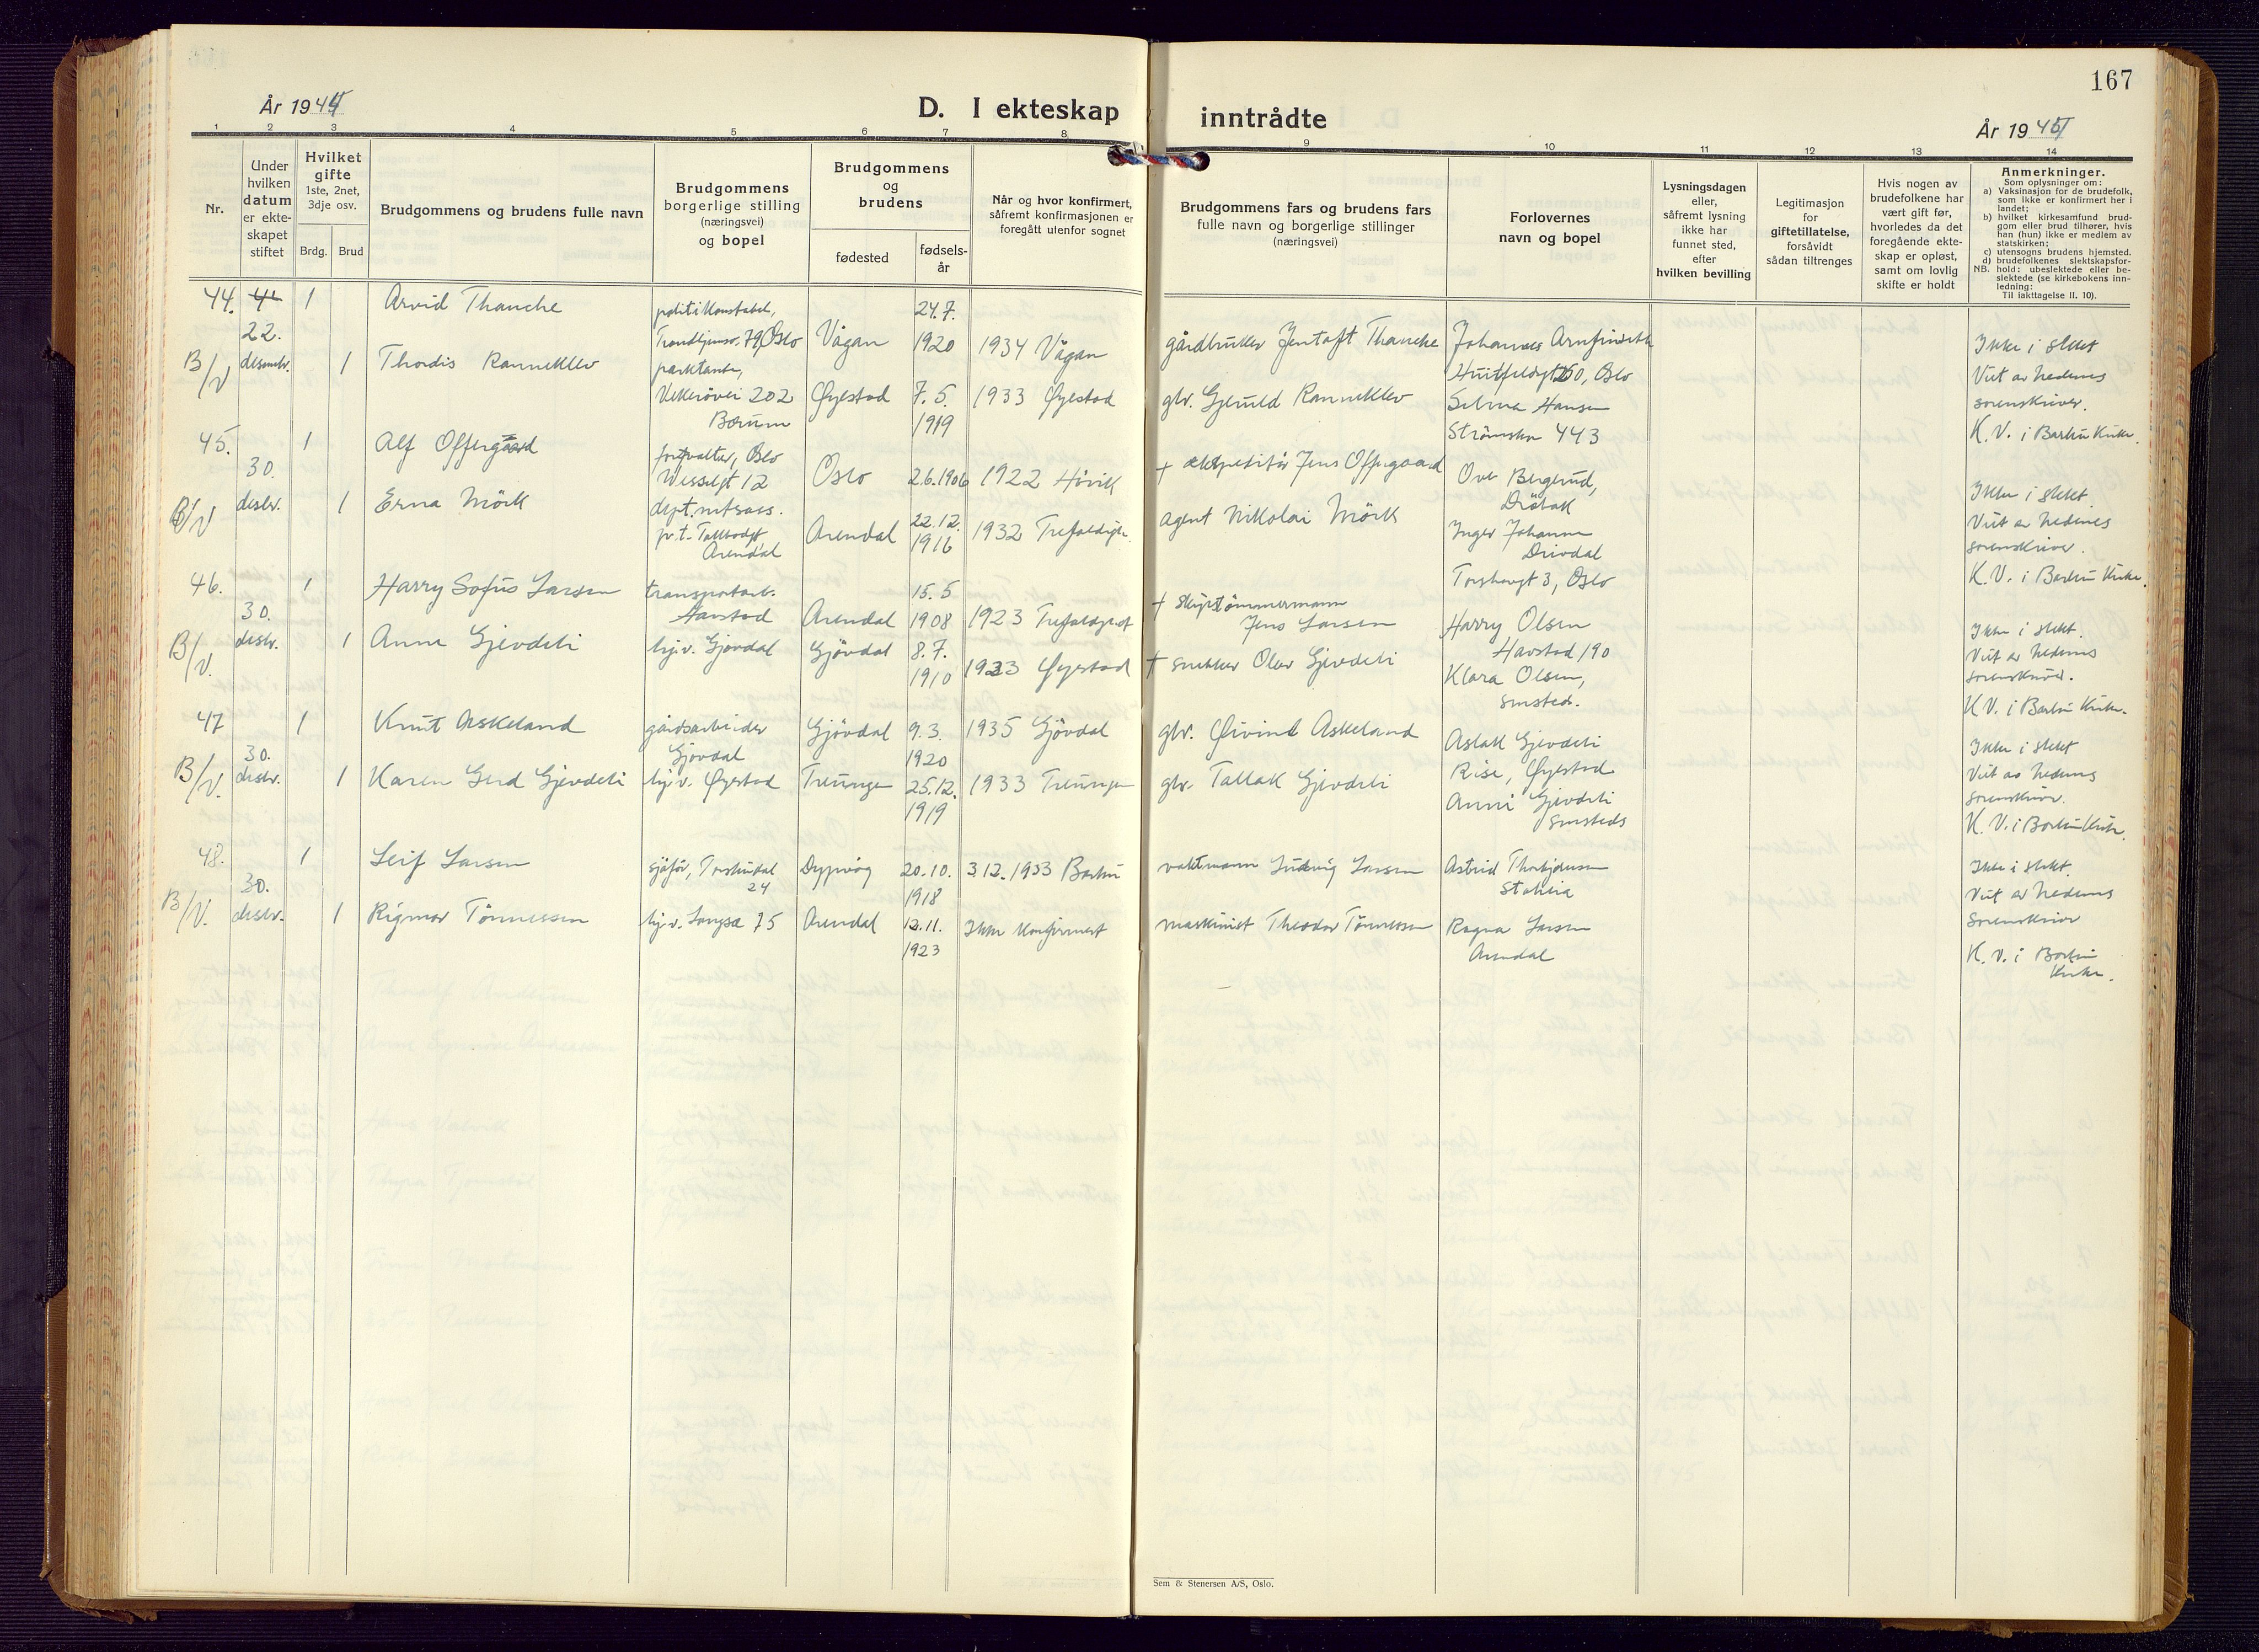 167
År 1944
D. I ekteskap inntrådte
År 194
1 2 3 4 5 6 7 8 9 10 11 12 13 14
Nr.
Under
hvilken
datum
er ekte-
skapet
stiftet
Hvilket
gifte
1ste, 2net,
3dje osv.
Brdg. Brud
Brudgommens og brudens fulle navn
Brudgommens
borgerlige stilling
(næringsvei)
og bopel
Brudgommens
og
brudens
fødested
fødsels-
år
Når og hvor konfirmert,
såfremt konfirmasjonen er
foregått utenfor sognet
Brudgommens fars og brudens fars
fulle navn og borgerlige stillinger
(næringsvei)
Forlovernes
navn og bopel
Lysningsdagen
eller,
såfremt lysning
ikke har
funnet sted,
efter
hvilken bevilling
Legitimasjon
for
giftetillatelse,
forsåvidt
sådan tiltrenges
Hvis nogen av
brudefolkene har
vært gift før,
hvorledes da det
foregående ekte-
skap er opløst,
samt om lovlig
skifte er holdt
Anmerkninger.
Som oplysninger om:
a) Vaksinasjon for de brudefolk,
som ikke er konfirmert her i
landet;
b) hvilket kirkesamfund brud-
gom eller brud tilhører, hvis
han (hun) ikke er medlem av
statskirken;
c) utensogns brudens hjemsted.
d) brudefolkenes slektskapsfor-
NB. hold: ubeslektede eller be-
slektede (se kirkebokens inn-
ledning:
Til iakttagelse II, 10).
44. 1 Arvid Thanche politikonstabel, 24.7.
22. Trondhjemsv. 79, Oslo Vågan 1920 1934 Vågan gårdbruker Jentoft Thanche Johannes
B/V desembr. 1 Thordis Ranneklev Oslo
Vekerøvei 202 Øyestad 7.5. 1933 Øyestad gbr. Gjeruld Ranneklev Selma Hansen
Bærum 1919 443
Ikke i slekt
Viet av nedenes
sorenskriver.
K. V. i Barbu Kirke.
45. 1 Alf Offergaard forvalter, Oslo
30. Wesselsgt 12 Oslo 2.6.1906 1922 Høvik + ekspeditør Jens Offergaard Ove Bergerud,
B/V desbr. 1 Erna Mörk Drøbak
p.t. Tollbodgt Arendal 22.12. 1932 agent Nikolai Mörk Inger Johanne
Arendal 1916 Drivdal
Torshovgt 3, Oslo
Ikke i slekt
Viet av nedenes
sorenskriver.
K. V. i Barbu Kirke.
46. 1 Harry Sofus Larsen transportarb. 15.5 + skipstømmermann
30. Havstad Arendal 1908 1923 Jens Larsen Harry Olsen
B/V. desbr. 1 Anne Gjevdeli hj.v. Gjövdal Gjövdal 8.7. Havstad 190
1910 1923 Øyestad + snekker Olav Gjevdeli Klara Olsen,
smsteds.
Ikke i slekt.
Viet av nedenes
sorenskriver.
K. V. i Barbu Kirke.
47 1 Knut Askeland gårdsarbeider Gjövdal 9.3. 1935 Gjövdal gbr. Øivind Askeland Aslak Gjevdeli
30. Gjövdal 1920 Rise, Øyestad
B/V. desbr. 1 Karen Gurd Gjevdeli hj.v. Øyestad Treungen 25.12. 1933 Treungen gbr. Tallak Gjevdeli Anni Gjevdeli
1919 smsteds
Ikke i slekt
Viet av nedenes
sorenskriver.
K. V. i Barbu Kirke.
48. 1 Leif Larsen sjåfør, Dypvåg 20.10. 3.12.1933 Barbu vaktmann Ludvig Larsen Astrid Thorbjörnsen
30. 24 1918
B/V. desbr. 1 Rigmor Tönnessen hj.v. Langsæ 75 Arendal 13.11. Ikke konfirmert maskinist Theodor Tönnessen Ragna Larsen
1923 Arendal
Ikke i slekt.
Viet av nedenes
sorenskriver
K. V. i Barbu
Kirke.
Sem & Stenersen A/S, Oslo.